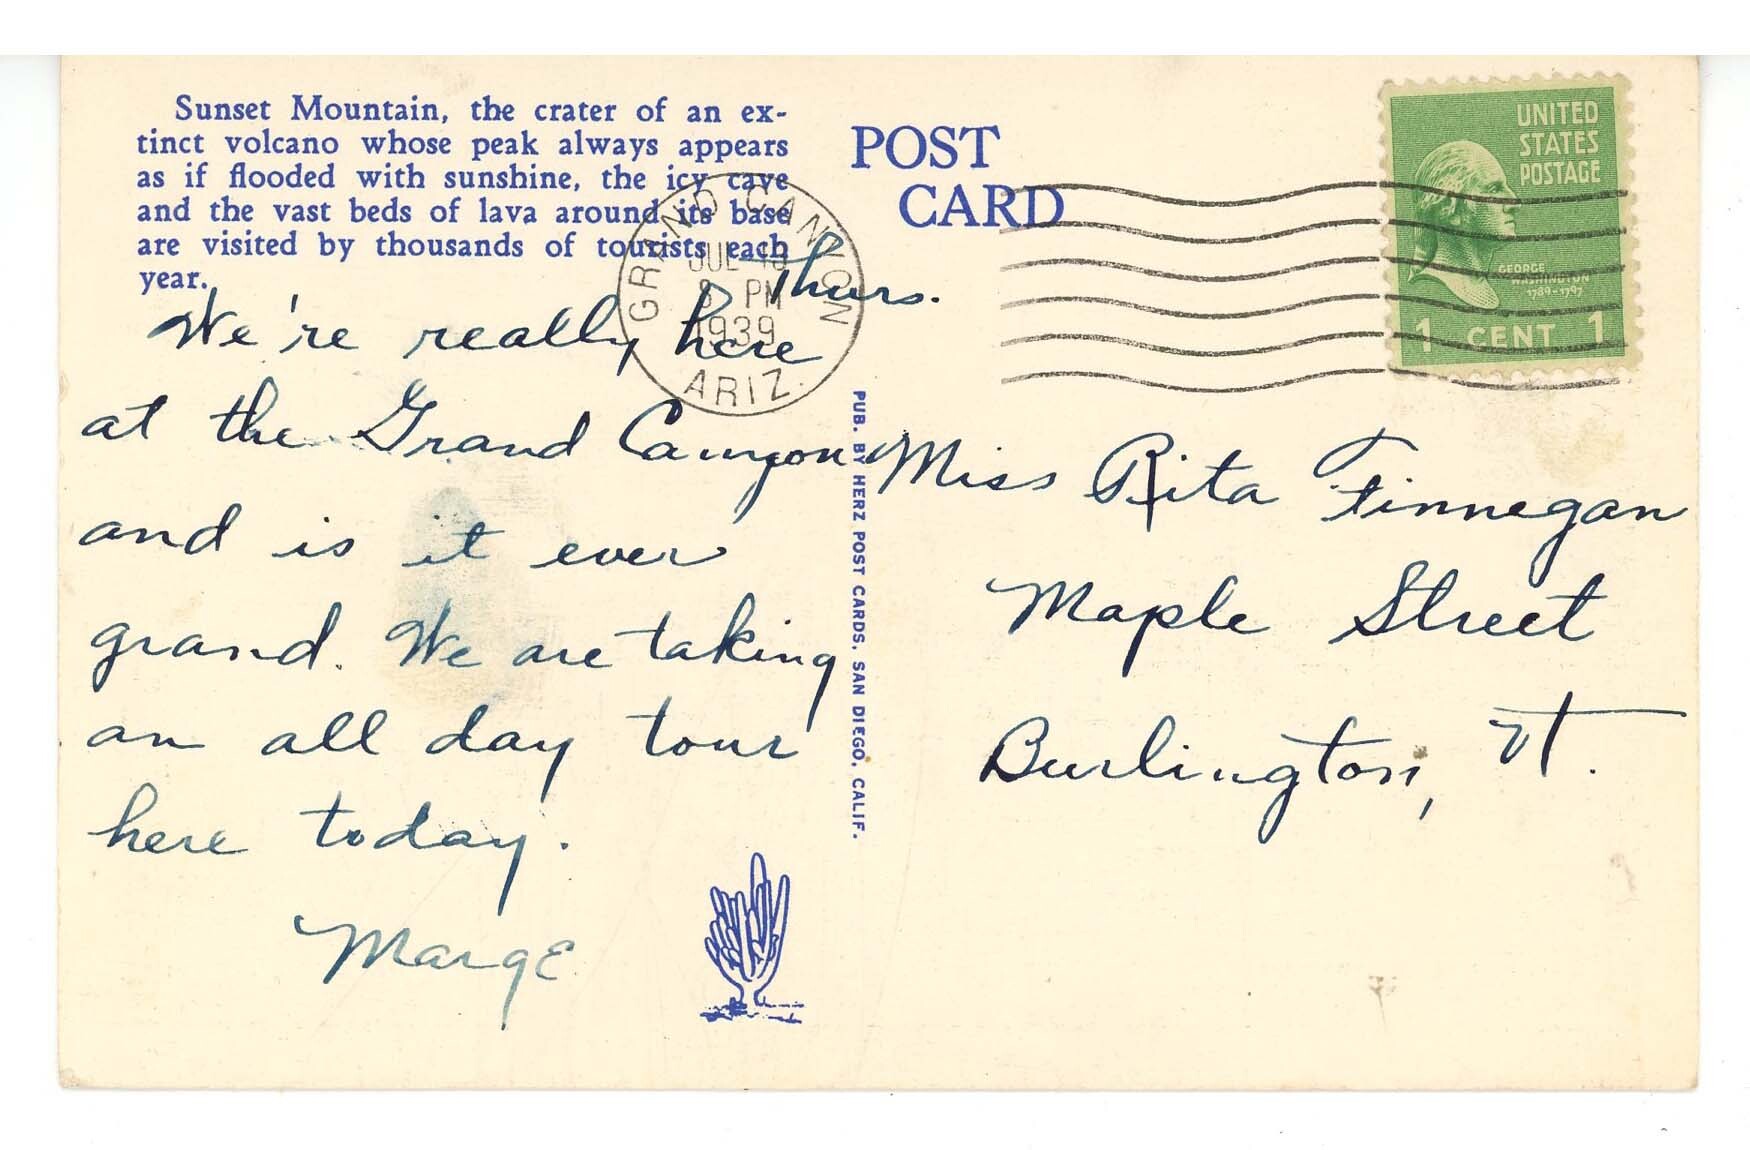 Sunset Mountain, the crater of an ex-
tinct volcano whose peak always appears
as if flooded with sunshine, the icy cave
and the vast beds of lava around its base
are visited by thousands of tourists each
year.
POST
CARD
GRAND CANYON
JUL
8 PM
1939
ARIZ.
UNITED
STATES
POSTAGE
GEORGE
WASHINGTON
1789-1797
1 CENT 1
Thurs.
We're really here
at the Grand Canyon
and is it ever
grand. We are taking
an all day tour
here today.
Marge
PUB. BY HERZ POST CARDS, SAN DIEGO, CALIF.
Miss Rita Finnegan
Maple Street
Burlington, Vt.